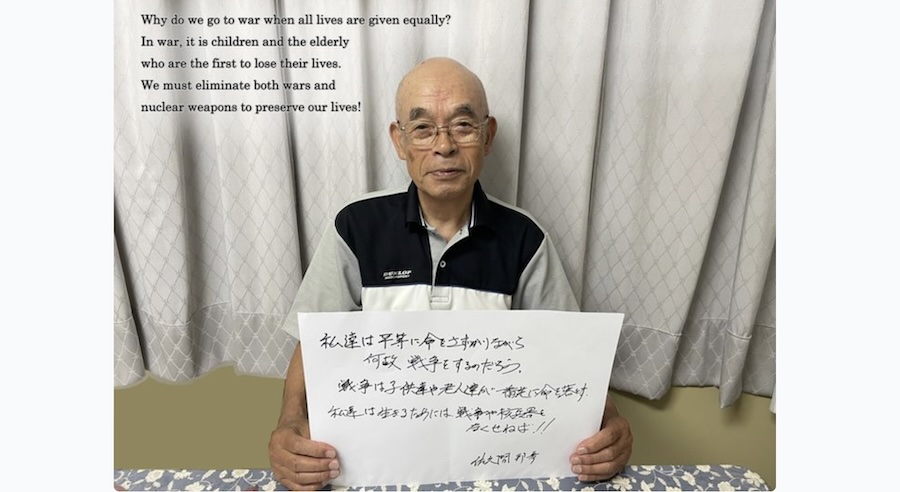 Why do we go to war when all lives are given equally?
In war, it is children and the elderly
who are the first to lose their lives.
We must eliminate both wars and
nuclear weapons to preserve our lives!
DUNLOP
私達は平等に命をさずかりながら
何故戦争をするのだろう。
戦争は子供達や老人達が一番先に命を落す
私達は生きるためには戦争や核兵器を
なくせねば!!